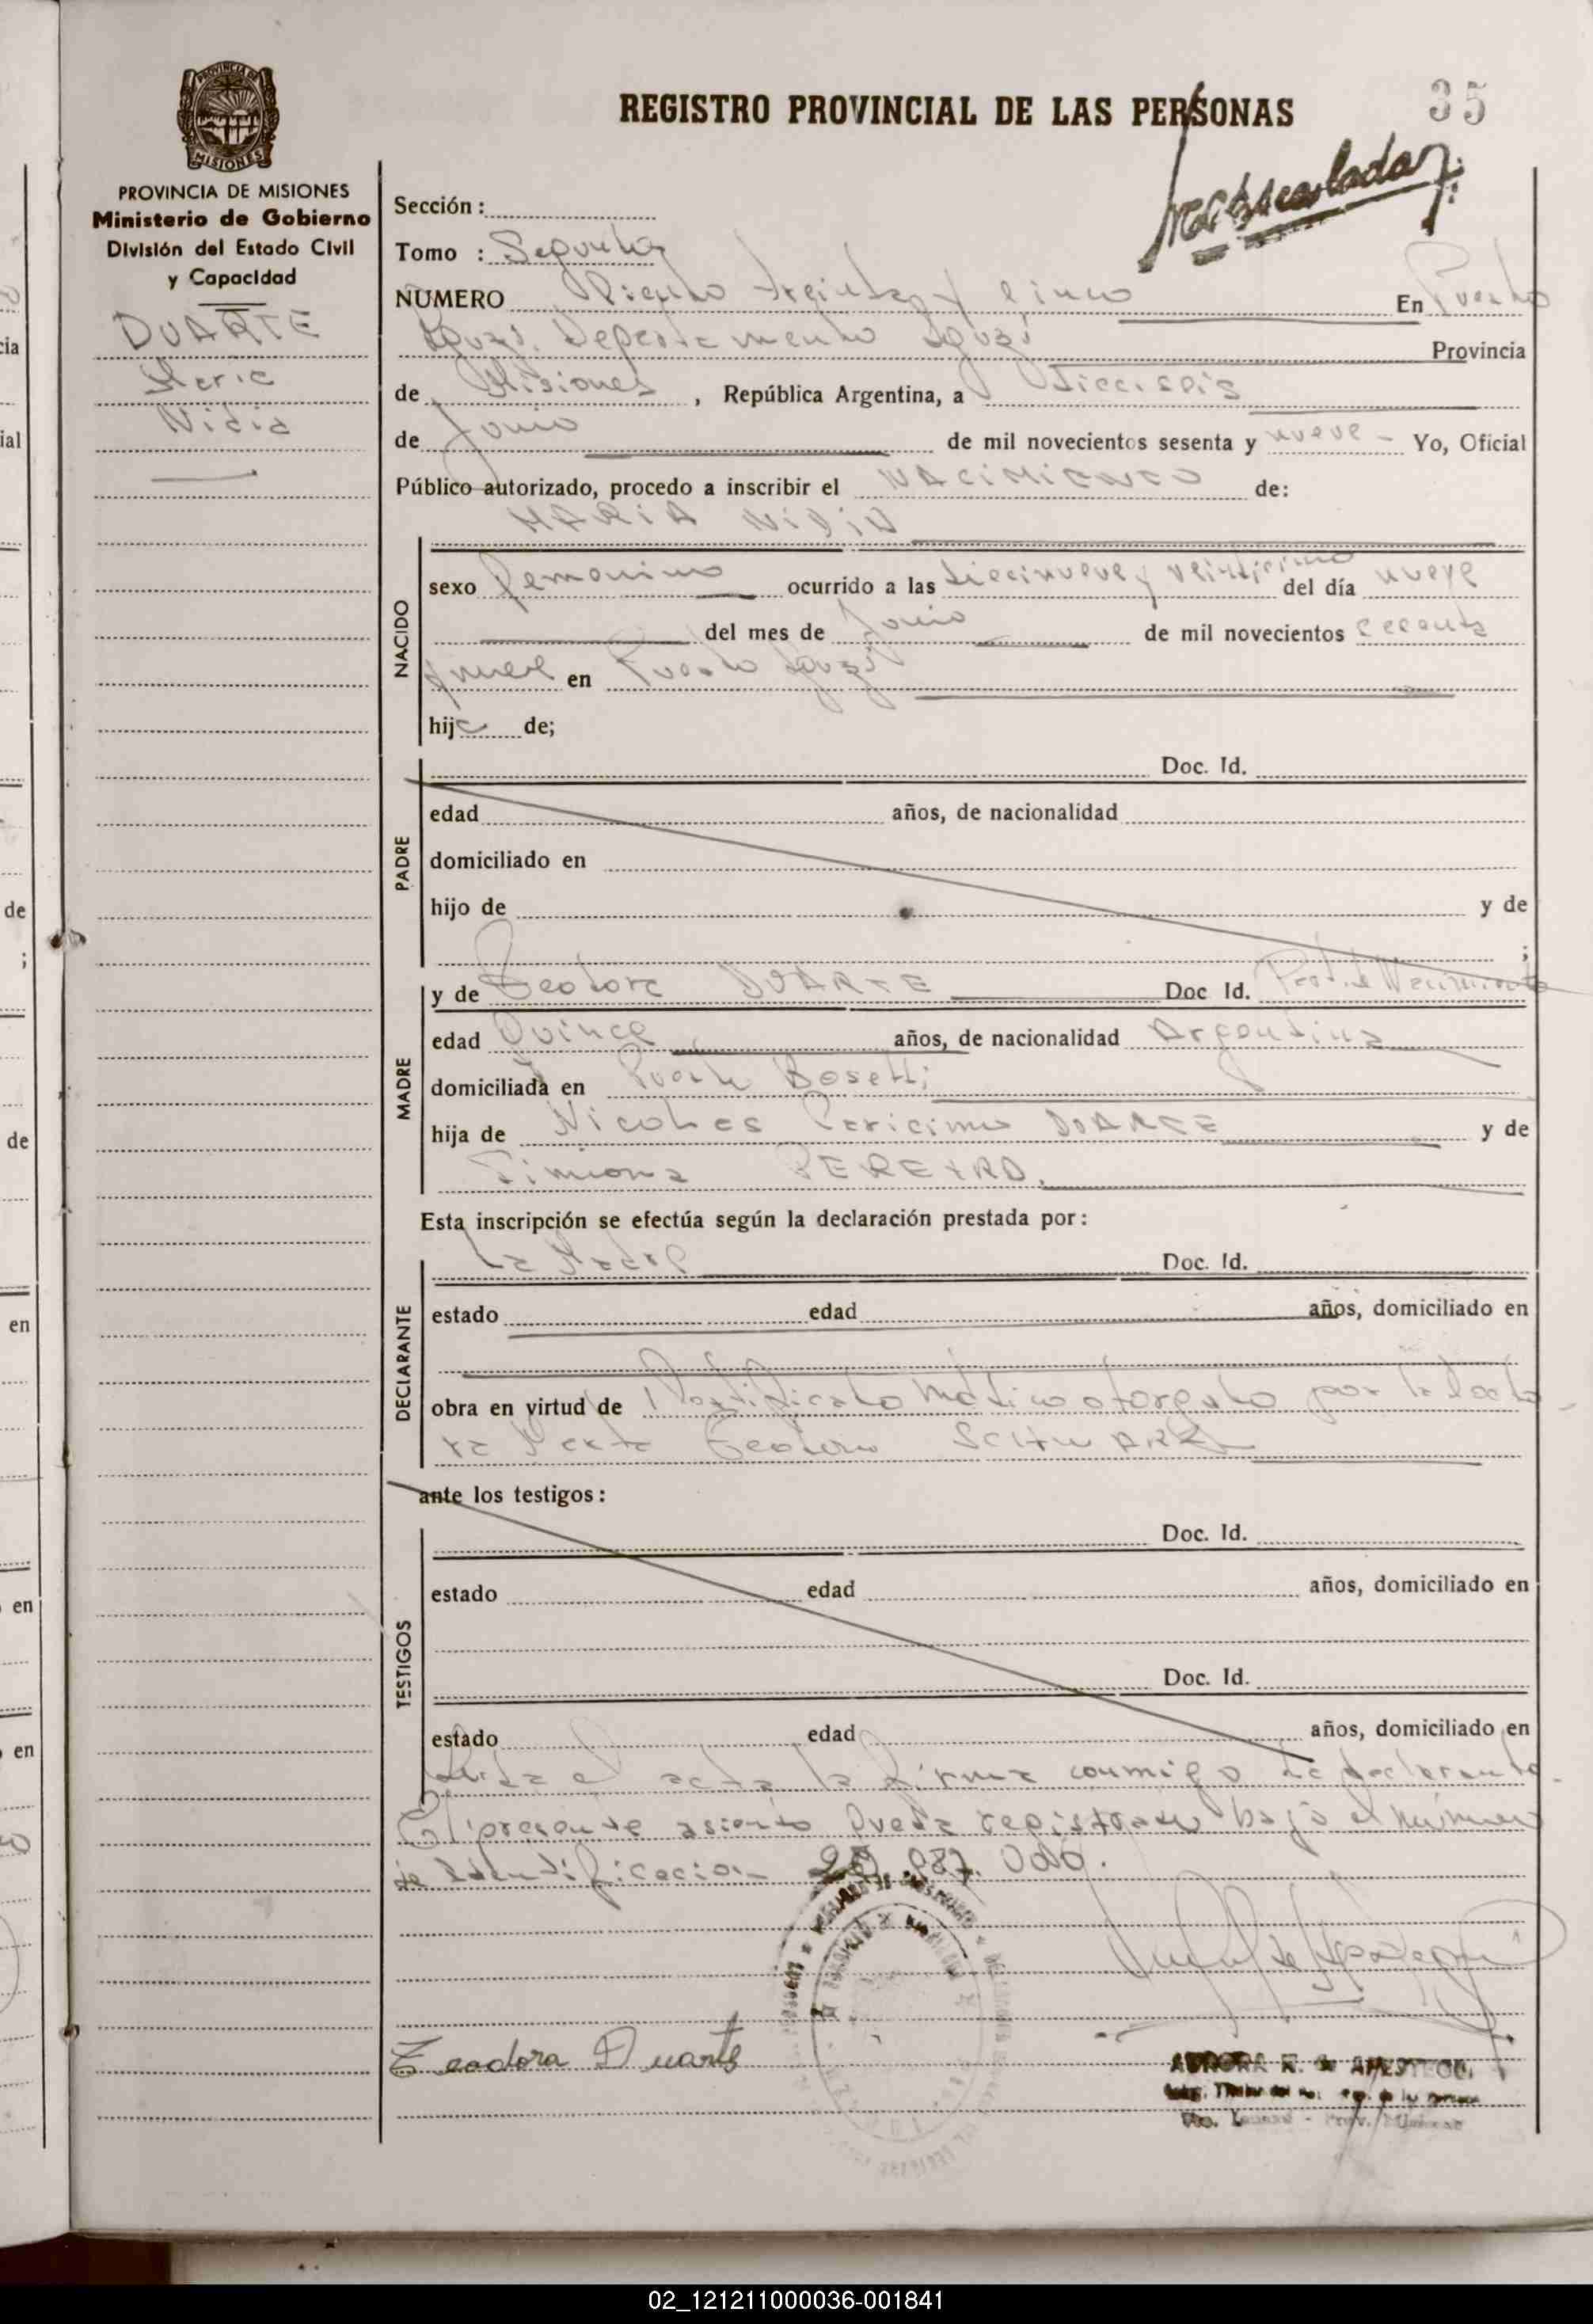 REGISTRO PROVINCIAL DE LAS PERSONAS
35
PROVINCIA DE
MISIONES
PROVINCIA DE MISIONES
Ministerio de Gobierno
División del Estado Civil
y Capacidad
DUARTE
Maria
Nidia
Sección :
Tomo : Segundo
NUMERO Ciento treinta y cinco En Puerto
Iguazú Departamento Iguazú Provincia
de Misiones, República Argentina, a Dieciseis
de Junio de mil novecientos sesenta y nueve - Yo, Oficial
Público autorizado, procedo a inscribir el NACIMIENTO de:
MARIA NIDIA
NACIDO
sexo Femenino ocurrido a las diecinueve y veinticinco del día nueve
del mes de Junio de mil novecientos sesenta
y nueve en Puerto Iguazú
hija de;
PADRE
Doc. Id.
edad años, de nacionalidad
domiciliado en
hijo de y de
;
MADRE
y de Teodora DUARTE Doc Id. Part. de Nacimiento
edad Quince años, de nacionalidad Argentina
domiciliada en Puerto Bosetti
hija de Nicolas DUARTE y de
Simiona
Esta inscripción se efectúa según la declaración prestada por:
DECLARANTE
La Madre Doc. Id.
estado edad años, domiciliado en
obra en virtud de Certificado Médico otorgado por la Docto
ra SCHWARZ
ante los testigos:
TESTIGOS
Doc. Id.
estado edad años, domiciliado en
Doc. Id.
estado edad años, domiciliado en
Leida el acta la firma conmigo la declarante.
El presente asiento queda registrado bajo el número
de Identificación 20.987.080.
Teodora Duarte
AURORA R. de APESTEGUI
02_121211000036-001841